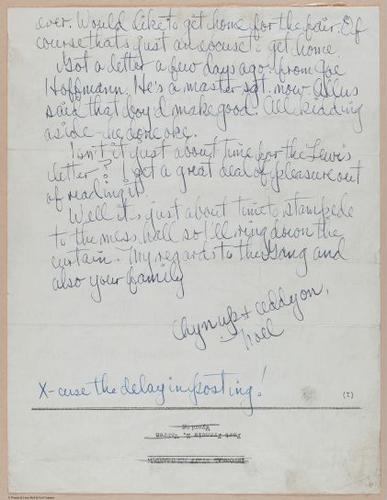 ever. Would like to get home for the fair. Of
course that's just an excuse to get home
Got a letter a few days ago from Joe
Hoffmann. He's a master sgt. now
said that boy'd make good. All kidding
aside - he done oke.
Isn't it just about time for the Lewis
letter? I get a great deal of pleasure out
of reading it.
Well it's just about time to stampede
to the mess hall so I'll ring down the
curtain. My regards to the Gang and
also your family
Chyn up &
Noel
X-cuse the delay in posting!